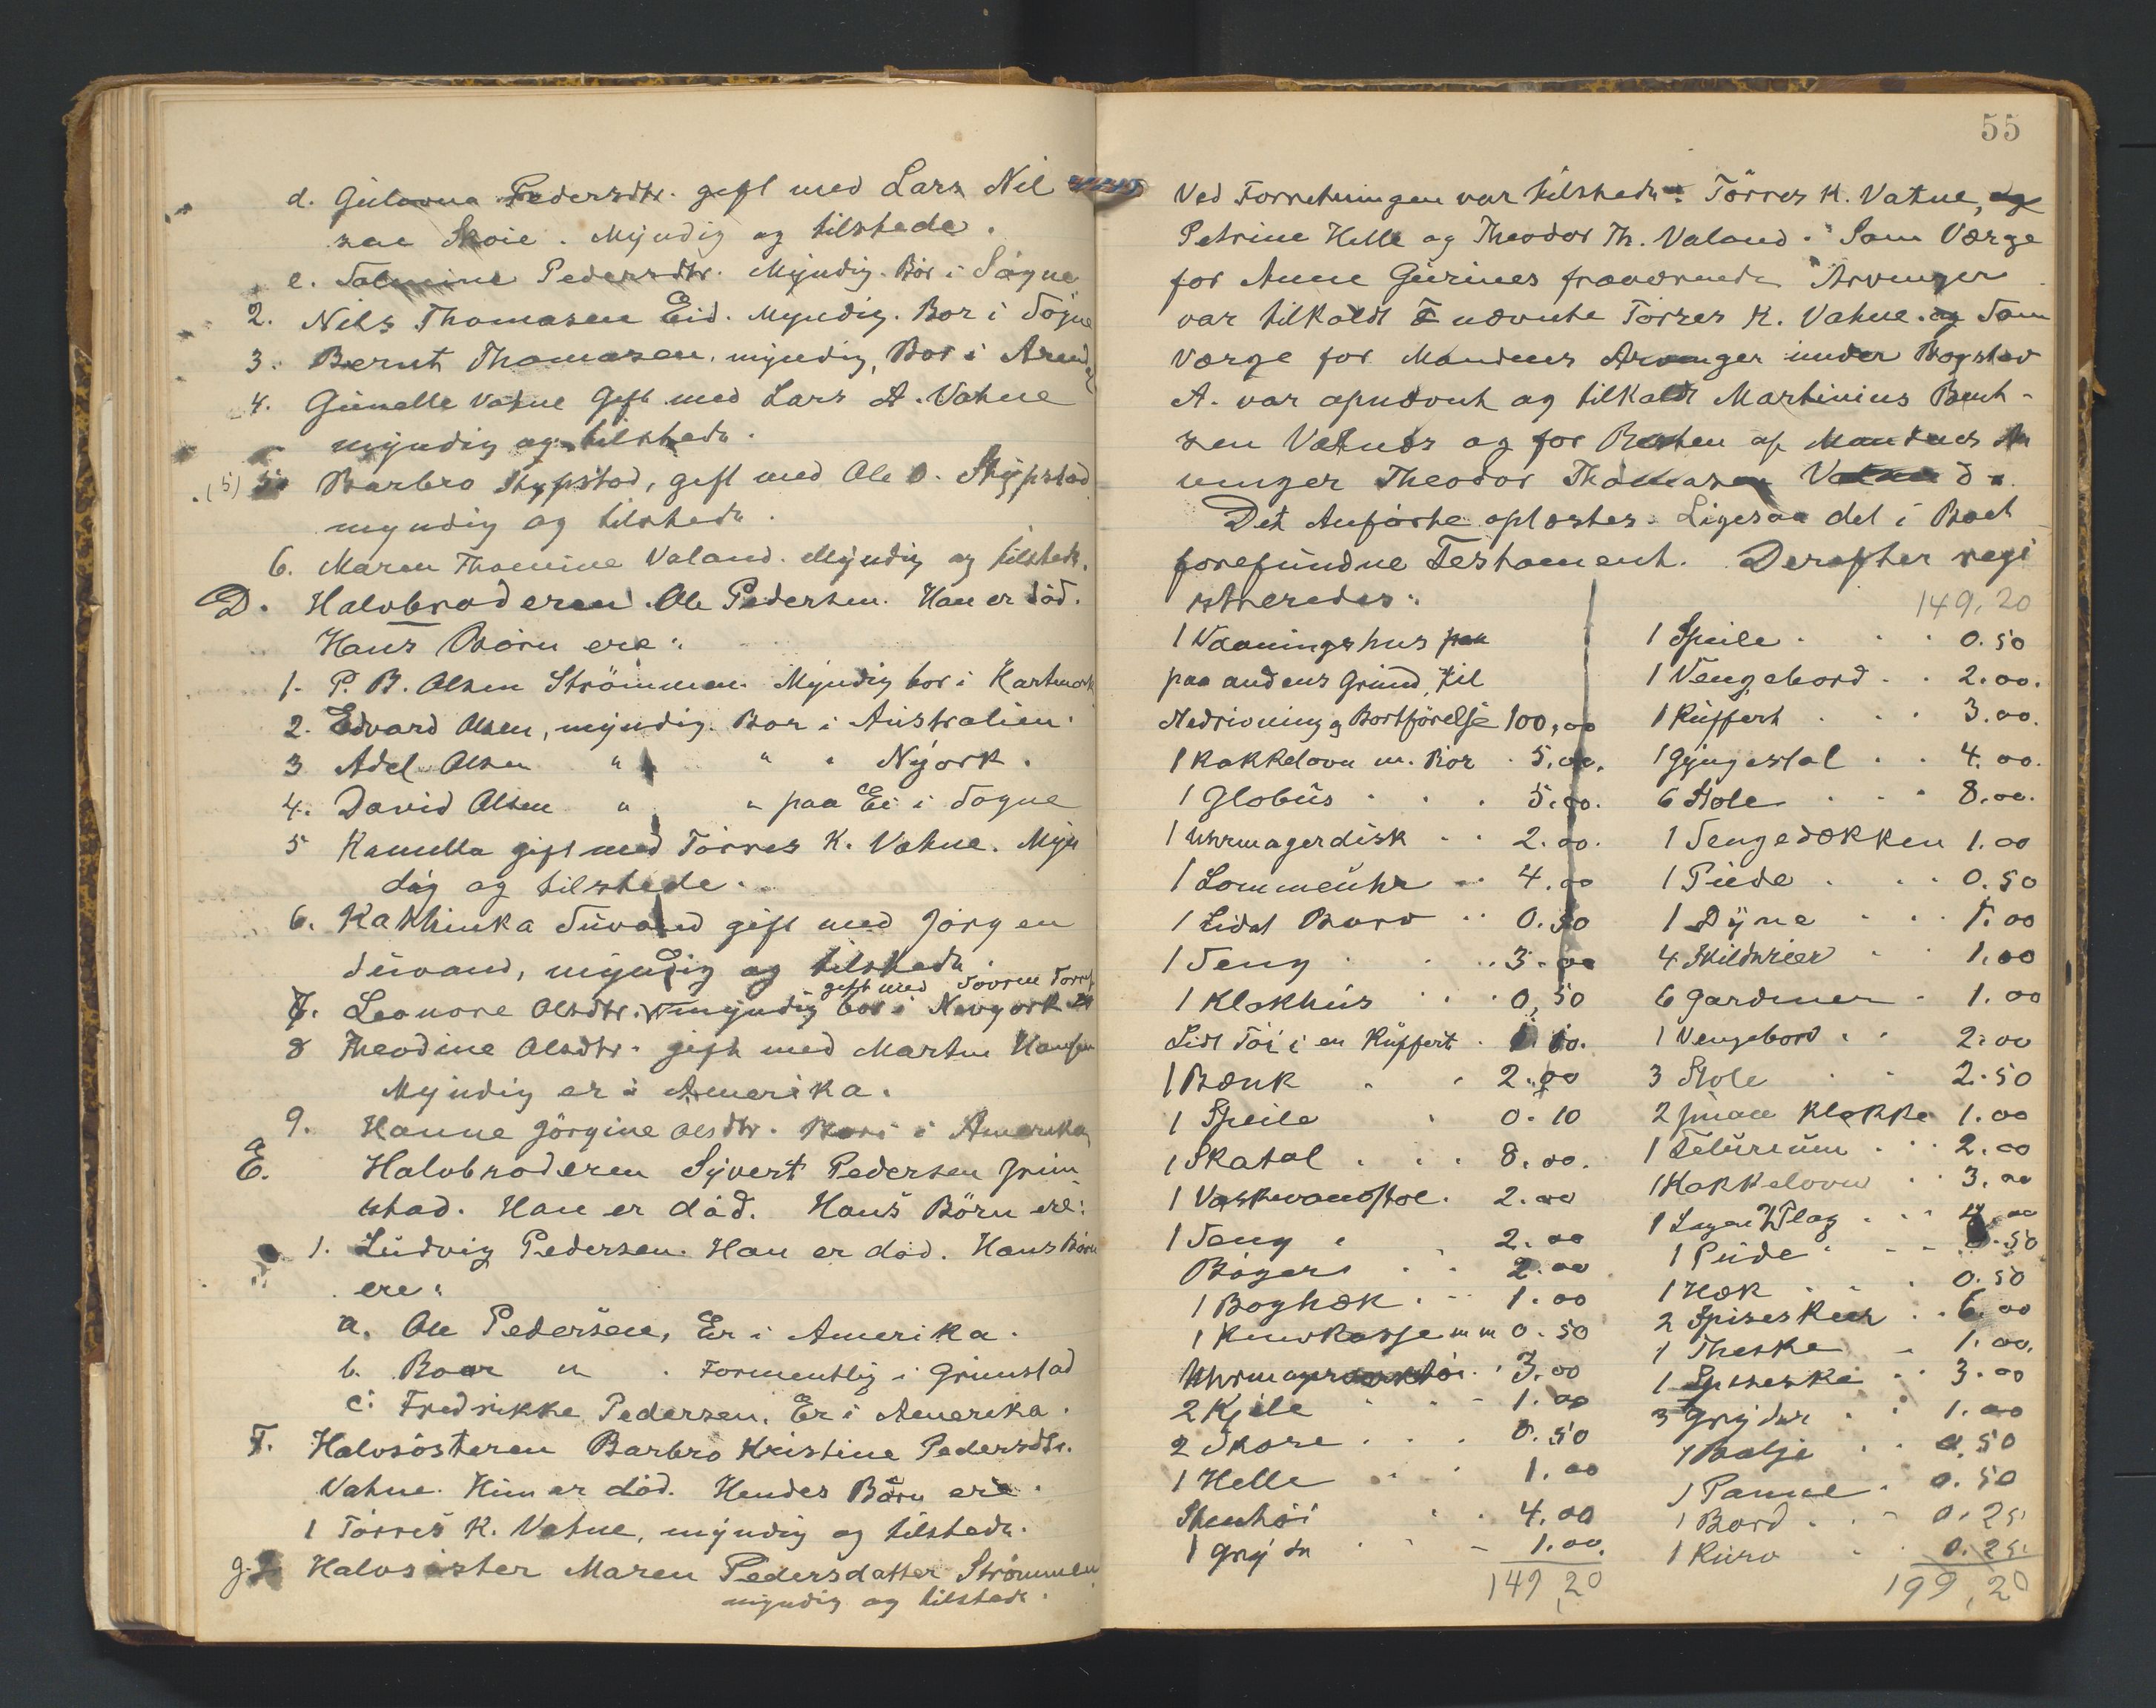 d. Gulovna Pedersdtr. gift med Lars Nil
sen Skoie. Myndig og tilstede.
e. Talmine Pedersdtr. Myndig. Bor i Søgne
2. Nils Thomasen Eid. Myndig. Bor i Søgne
3. Bernt Thomasen, myndig, Bor i Arendal
4. Gunelle Vatne Gift med Lars A. Vatne
myndig og tilstede.
(5) 5. Barbro Stypstad, gift med Ole O. Stypstad
myndig og tilstede.
6. Maren Thomine Valand. Myndig og tilstede.
D. Halvbroderen Ole Pedersen. Han er död.
Hans Börn ere:
1. P. B. Olsen Strömmen Myndig bor i Kartmork
2. Edvard Olsen, myndig. Bor i Australien.
3 Adel Olsen " " " Nyork.
4. David Olsen " " paa Ei i Søgne
5 Kamilla gift med Törres K. Vatne. Myn
dig og tilstede.
6. Kathinka Tuvand gift med Jörgen
Tuvand, myndig og tilstede
gift med
7. Leonore Olsdtr. myndig bor i Newyork
8 Theodine Olsdtr. gift med Martin Hansen
Myndig er i Amerika.
9. Hanne Jörgine Olsdtr. Bor i Amerika
E. Halvbroderen Syvert Pedersen Grim
stad. Han er död. Hans Börn ere:
1. Ludvig Pedersen. Han er död. Hans Börn
ere:
a. Ole Pedersen, Er i Amerika.
b. Boar " . Formentlig i Grimstad
c. Fredrikke Pedersen. Er i Amerika.
F. Halvsösteren Barbro Kristine Pedersdtr.
Vatne. Hun er död. Hendes Börn ere.
1 Törres K. Vatne, myndig og tilstede.
g. Halvsöster Maren Pedersdatter Strömmen
myndig og tilstede.
55
Ved Forretningen var tilstede: Törres K. Vatne, og
Petrine Helle og Theodor Th. Valand. Som Værge
for Anne Gurines fraværende Arvinger
var tilkaldt nævnte Törres K. Vatne. og Som
Værge for Mandens Arvinger under Bogstav
A. var opnævnt og tilkaldt Martinius Bent-
sen Vatnes og for Resten af Mandens Ar
vinger Theodor Thomasen
Det Anførte oplæstes. Ligesaa det i Boet
forefundne Testament. Derefter regi
streredes:
149,20
1 Vaaningshus paa
paa andens Grund, til
Nedrivning og Bortförelse 100,00
1 Kakkelovn m. Rör . 5,00.
1 Globus . . . 5.00.
1 Uhrmagerdisk . . 2.00.
1 Lommeuhr . . 4.00
1 Lidet Bord . . 0.50
1 Seng . . . 3.00
1 Klokhus . . . 0,50
Lidt Töi i en Kuffert . 1.00.
1 Bænk . . 2.00
1 Speile . 0.10
1 Skatol . . . 8.00.
1 Vaskevandstol . 2.00
1 Seng . . 2.00
Böger . . 2.00
1 Boghæk . . 1.00
1 Knivkasse m m 0.50
Uhrmagerværktöi . 3.00
2 Kjele . . . 1.00
2 Skore . . . 0.50
1 Helle . . . 1.00
Stentöi . . 4.00
1 Gryde . . . 1.00.
149,20
1 Speile . . . 0.50
1 Vengebord . . 2.00.
1 Kuffert . . . 3.00.
1 Gyngestol . . 4.00.
6 Stole . . . 8.00.
1 Sengedækken 1.00
1 Pude . . . 0.50
1 Dyne . . . 1.00
4 Skilderier . 1.00
6 Gardiner . 1.00
1 Vengebord . . 2.00
3 Stole . . 2.50
2 smaa Klokke 1.00
1 Telurium . . 2.00
1 Kakkelovn . . 3.00
1 Pude . . .50
1 Hæk . . . 0.50
2 Spiseskeer . . 6.00
1 Theske . 1.00.
1 Spiseske . . 3.00
3 Gryder . . 1.00
1 Balje . . 0.50
1 Panne . 0.50
1 Bord . . 0.25.
1 Kurv . . 0.25.
199,20